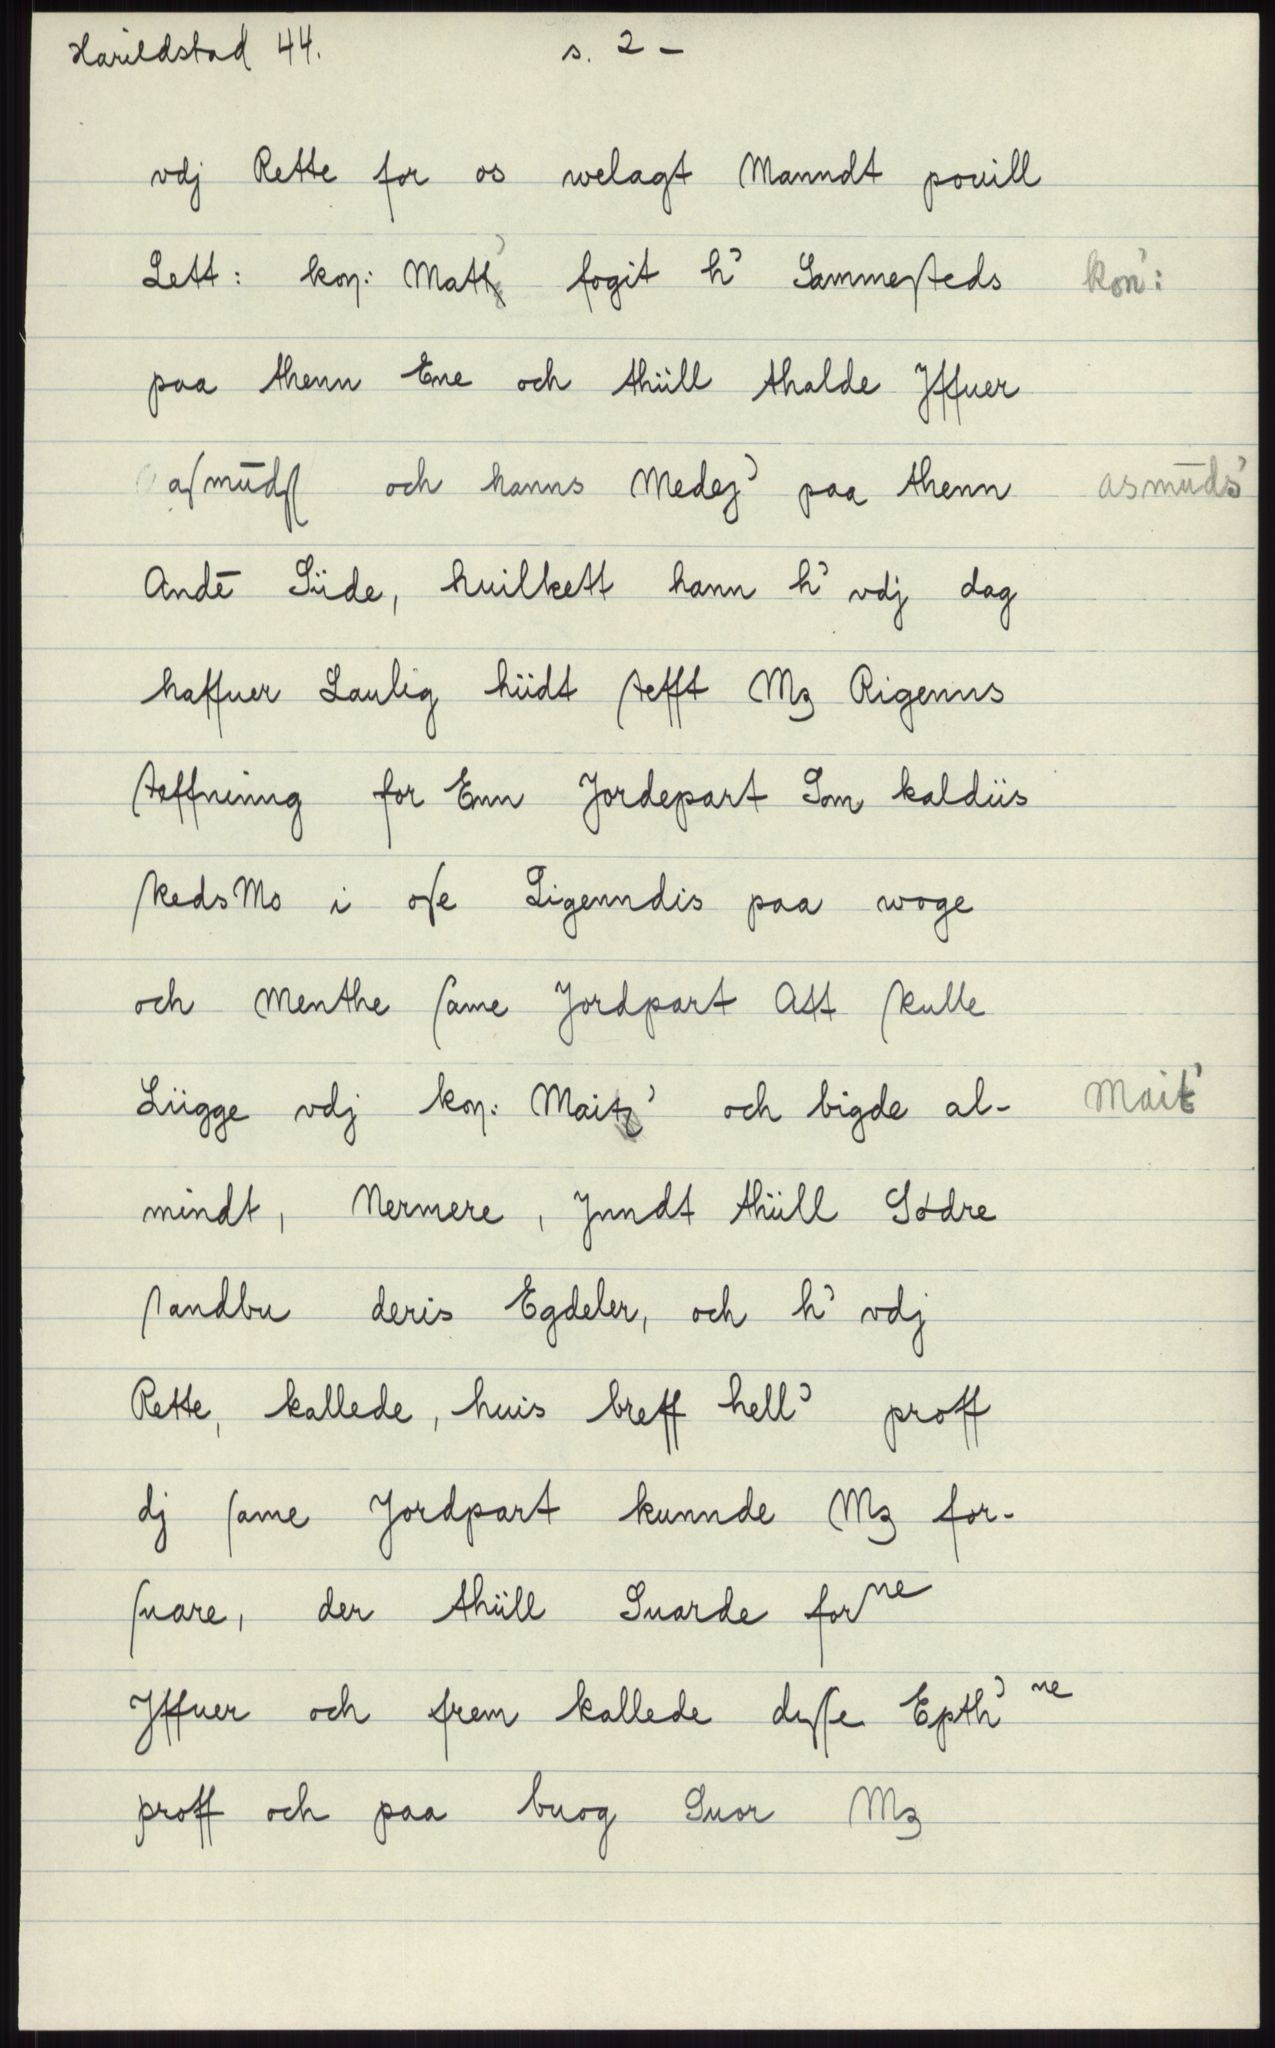 Harildstad 44. s. 2 -
vdj Rette for os welagt Manndt pouill
Lett: kon: Matt' fogit h' Sammesteds kon':
paa thenn Ene och thiill thalde Yffuer
asmūdsß och hanns Medej' paa thenn asmūds'
Andē Siide, huilkett hann h' vdj dag
haffuer Laulig hiidt stefft Mz Rigenns
steffninng for Enn Jordepart Som kaldiis
skedsMo i ose Liigenndis paa woge
och Menthe same Jordpart Att skulle
Liigge vdj kon: Maitz' och bigde al- Mait'
mindt, Nermere, Jnndt thiill Sødre
sandbu deris Egdeler, och h' vdj
Rette, kallede, huis breff hell' proff
dj same Jordpart kunnde Mz for-
suare, der thiill Suarde forne
Yffuer och frem kallede disse Epth'ne
proff och paa buog Suor Mz